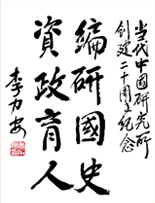 当代中國研究所
创建二十周年纪念
編研國史
資政育人
李力安